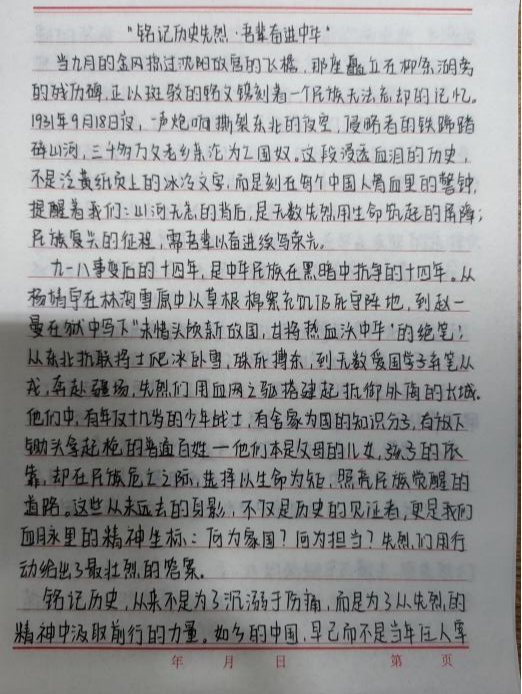 “铭记历史先烈·吾辈奋进中华”
当九月的金风掠过沈阳故宫的飞檐，那座矗立在柳条湖旁
的残历碑，正以斑驳的铭文镌刻着一个民族无法忘却的记忆。
1931年9月18日夜，一声炮响撕裂东北的夜空，侵略者的铁蹄踏
碎山河，三千多万父老乡亲沦为亡国奴。这段浸透血泪的历史，
不是泛黄纸页上的冰冷文字，而是刻在每个中国人骨血里的警钟，
提醒着我们：山河无恙的背后，是无数先烈用生命筑起的屏障；
民族复兴的征程，需吾辈以奋进续写荣光。
九一八事变后的十四年，是中华民族在黑暗中抗争的十四年。从
杨靖宇在林海雪原中以草根棉絮充饥仍死守阵地，到赵一
曼在狱中写下“未惜头颅新故国，甘将热血沃中华”的绝笔；
从东北抗联将士爬冰卧雪、殊死搏杀，到无数爱国学子弃笔从
戎、奔赴疆场，先烈们用血肉之躯搭建起抵御外侮的长城。
他们中，有年仅十几岁的少年战士，有舍家为国的知识分子，有放下
锄头拿起枪的普通百姓—他们本是父母的儿女、孩子的依
靠，却在民族危亡之际，选择以生命为炬，照亮民族觉醒的
道路。这些从未远去的身影，不仅是历史的见证者，更是我们
血脉里的精神坐标：何为家国？何为担当？先烈们用行
动给出了最壮烈的答案。
铭记历史，从来不是为了沉溺于伤痛，而是为了从先烈的
精神中汲取前行的力量。如今的中国，早已而不是当年任人宰
年 月 日 第 页